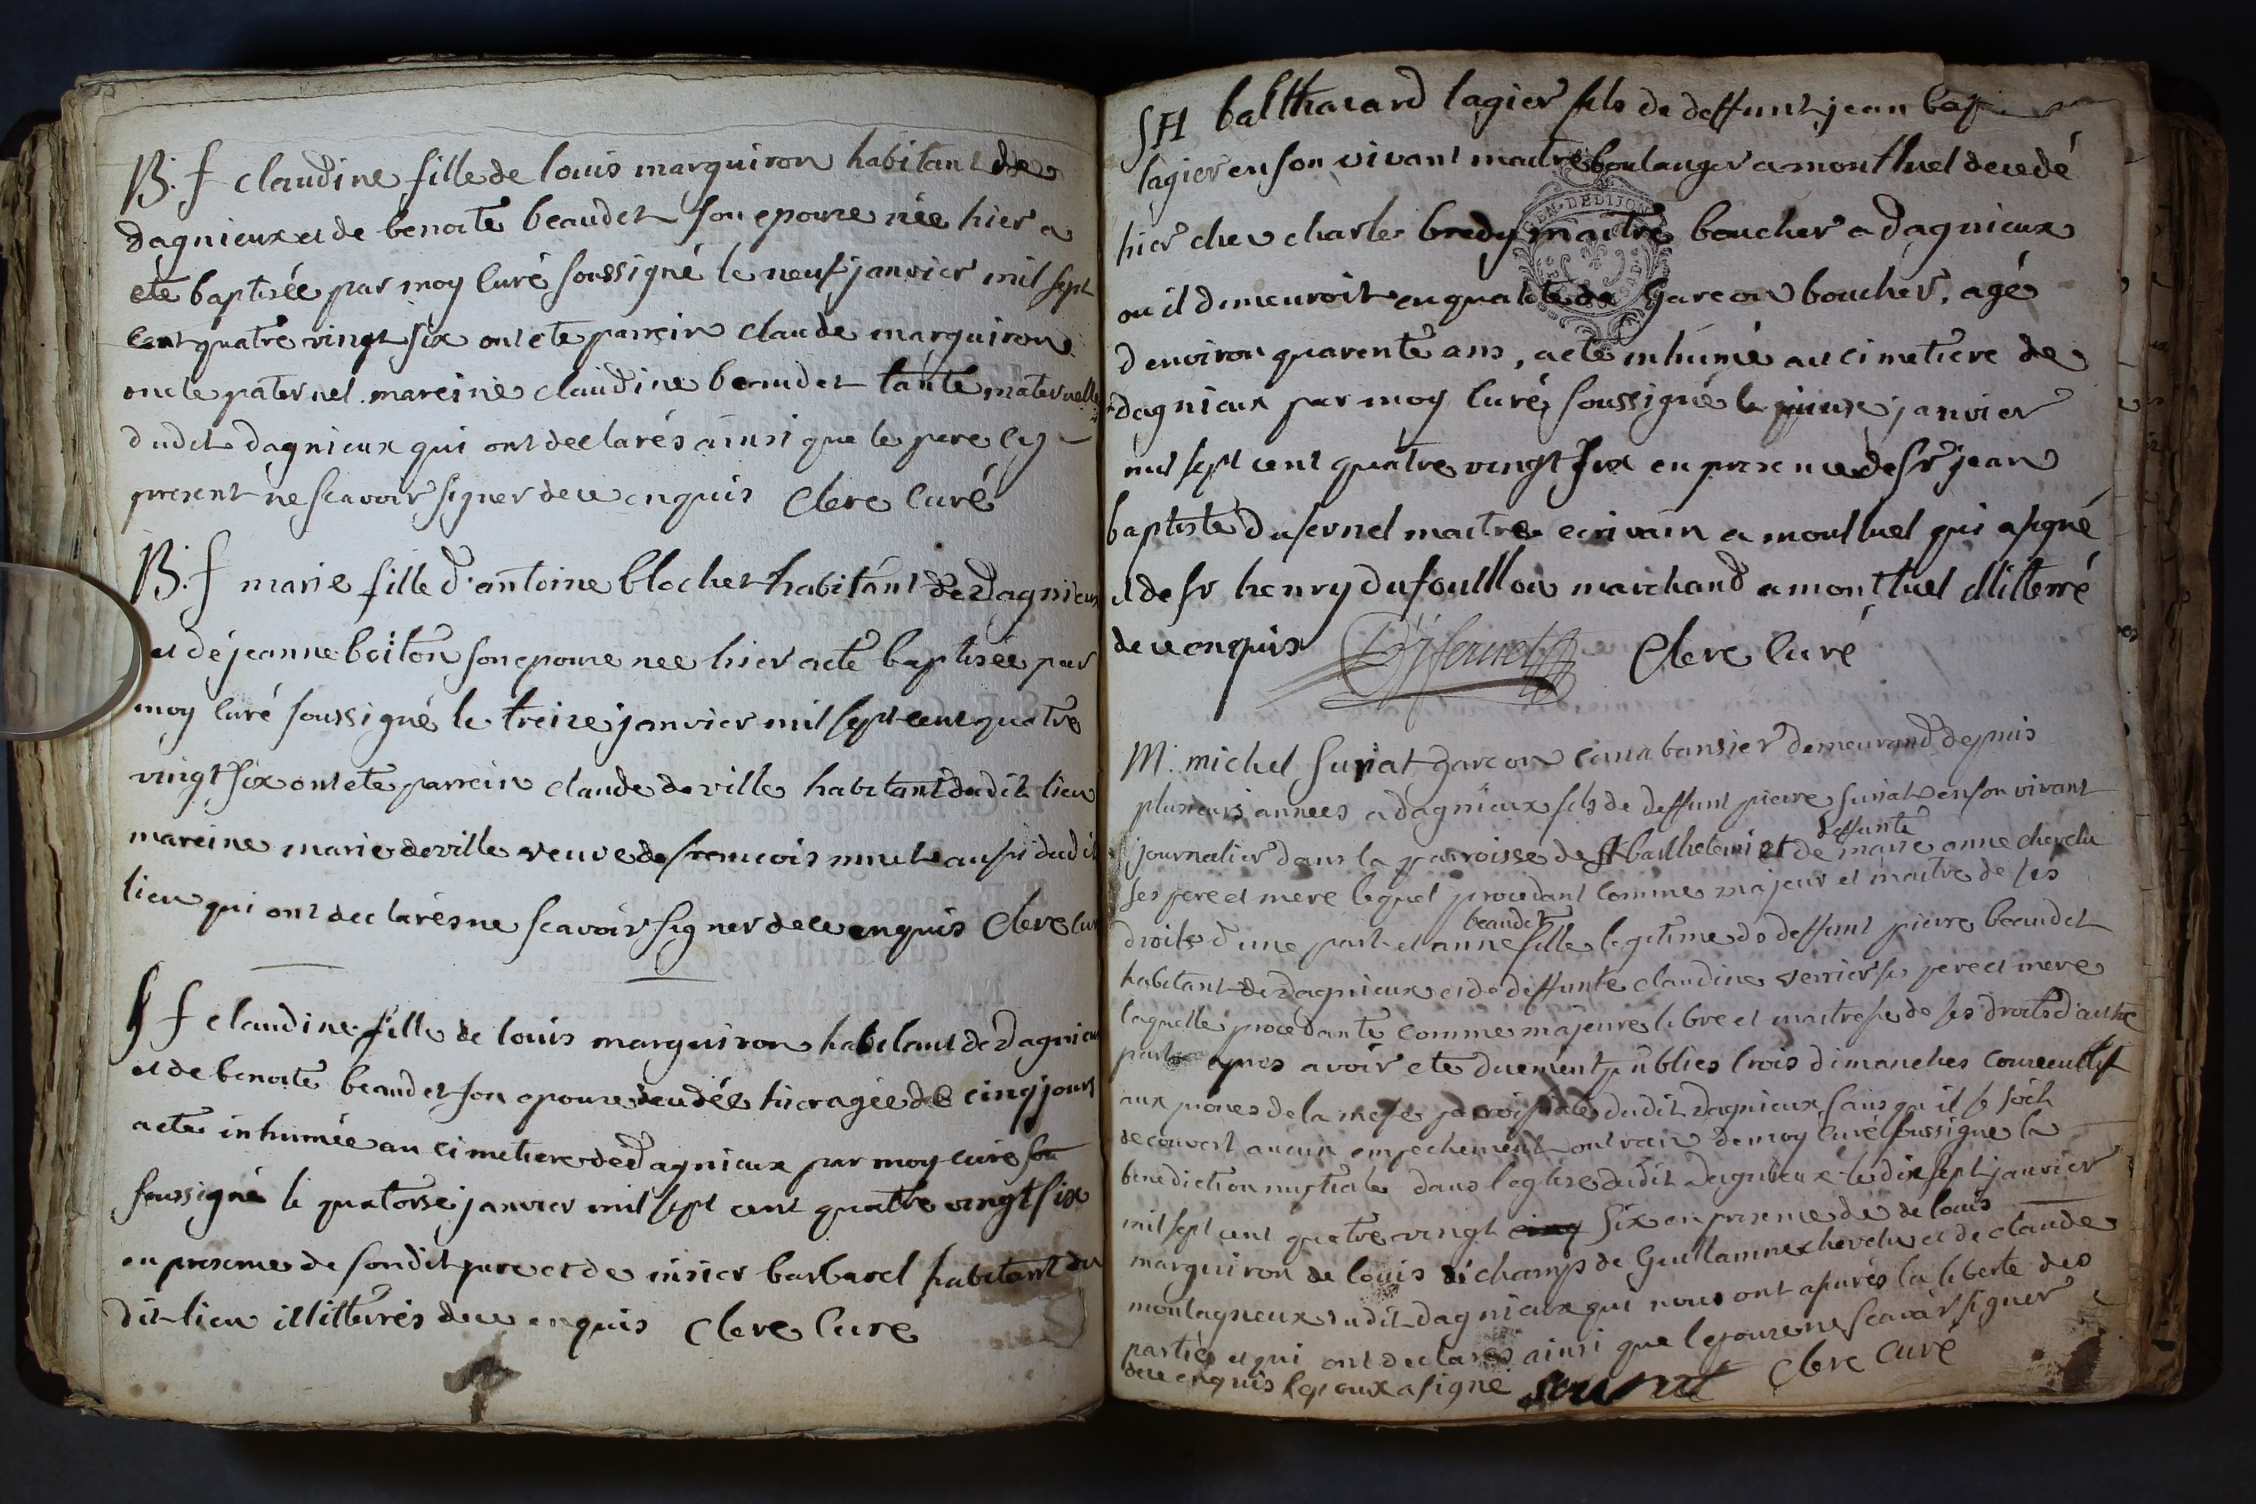 B. f claudine fille de louis marquiron habitant de
dagnieux et de benoite beaudet son epouse née hier a
eté baptisée par moy curé soussigné le neuf janvier mil sept
cent quatre vingt six ont ete parrein claude marquiron
oncle paternel mareine claudine beaudet tante maternelle
dudit dagnieux qui ont declarés ainsi que le pere cy
present ne scavoir signer de ce enquis Clerc Curé
B. f marie fille d'antoine blochet habitant de Dagnieux
et de jeanne boiton son epouse nee hier a ete baptisée par
moy curé soussigné le treize janvier mil sept cent quatre
vingt six ont ete parrein claude deville habitant dudit lieu
mareine marie deville veuve de francois aussi dudit
lieu qui ont declarés ne scavoir signer de ce enquis Clerc cur
S f claudine fille de louis marquiron habitant de Dagnieux
et de benoite beaudet son epouse decedée hier agée de cinq jours
a ete inhumée au cimetiere de Dagnieux par moy curé sou
soussigné le quatorse janvier mil sept cent quatre vingt six
en presence de son dit pere et de barbarel habitant du
dit lieu illitterés de ce enquis Clerc Curé
SH balthazard lagier fils de deffunt jean bap
lagier en son vivant maitre boulanger a montluel decedé
hier chez charles bredy maitre boucher a dagnieux
ou il demeuroit en qualité de garcon boucher, agé
d environ quarente ans, a eté inhumé au cimetiere de
dagnieux par moy curé soussigné le janvier
mil sept cent quatre vingt six en presence de sr jean
baptiste dufernel maitre ecrivain a montluel qui a signé
et de sr henry dufoulllon marchand a montluel illiterré
de ce enquis Dufernel Clerc Curé
M. michel suriat garcon demeurant depuis
plusieurs années a dagnieux fils de deffunt pierre suriat en son vivant
journalier dans la parroisse de St barthelemi et de deffunte marie anne chevelu
ses pere et mere lequel procedant comme majeur et maitre de ses
droits d'une part et anne beaudet fille legitime de deffunt pierre beaudet
habitant de dagnieux et de deffunte claudine verrier ses pere et mere
laquelle procedante comme majeure libre et maitresse de ses droits d'autre
part apres avoir ete duement publies trois dimanches
aux prones de la messe parroissiale dudit dagnieux sans qu il se soit
decouvert aucun empechement ont recu de moy curé soussigné la
benediction nuptiale dans l eglise dudit dagnieux le dix sept janvier
mil sept cent quatre vingt cinq six en presence de de louis
marquiron de louis dechamps de Guillaume chevelu et de claude
montagneux dudit dagnieux qui nous ont assurés la liberte des
parties et qui ont declarés ainsi que l epouse ne scavoir signer
de ce enquis l epoux a signé suriat Clerc Curé